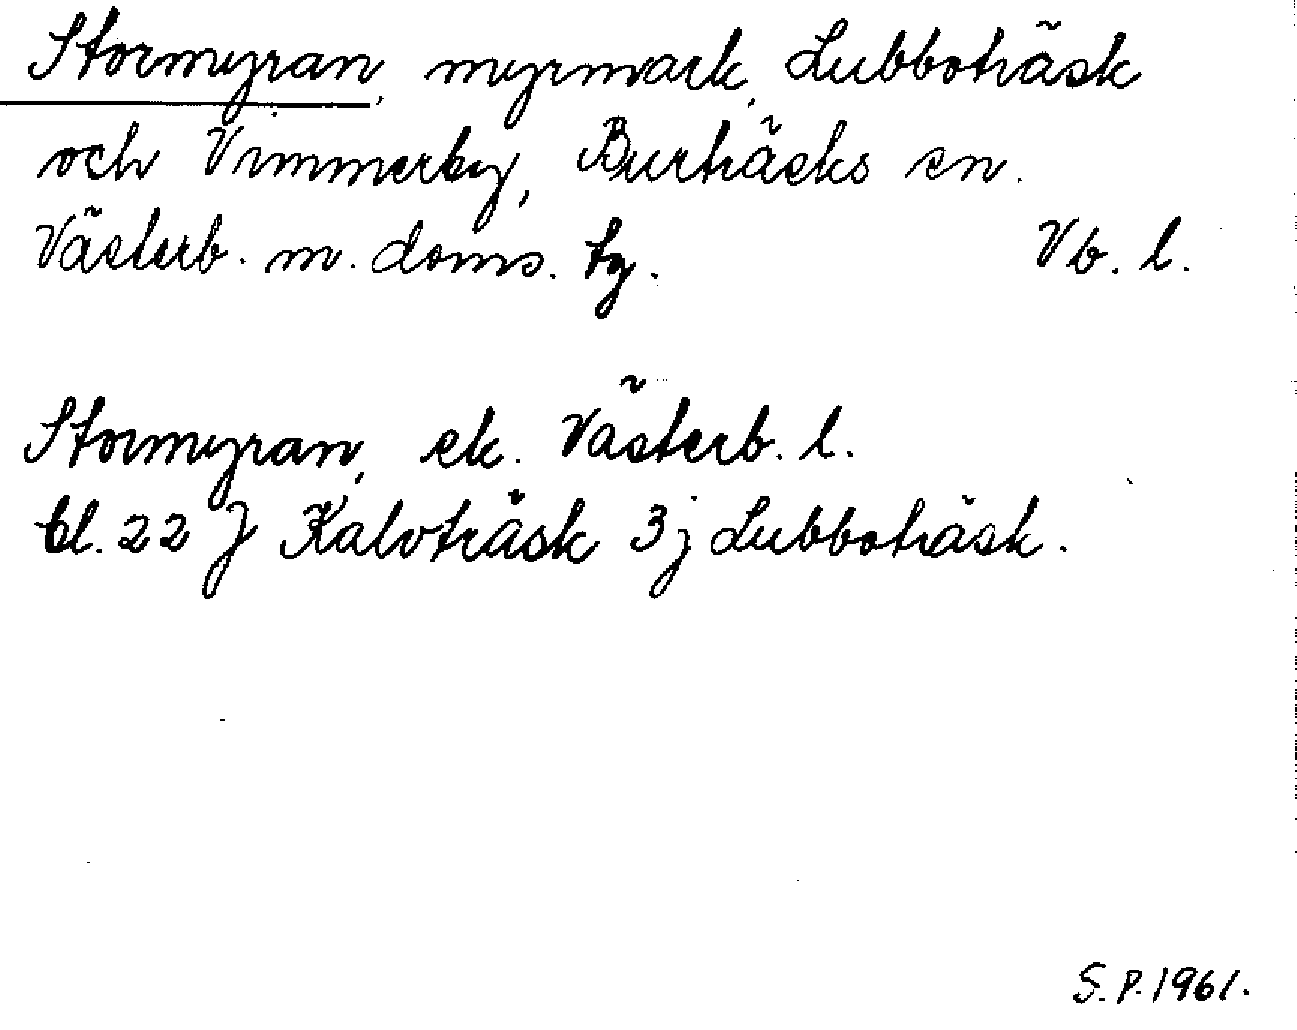 Stormyran, myrmark, Lubboträsk
och Vimmerby, Burträsks sn.
Västerb. m. doms. tg. Vb. l.
Stormyran, ek. Västerb. l.
bl. 22 J Kalvträsk 3 j Lubboträsk.
S. P. 1961.